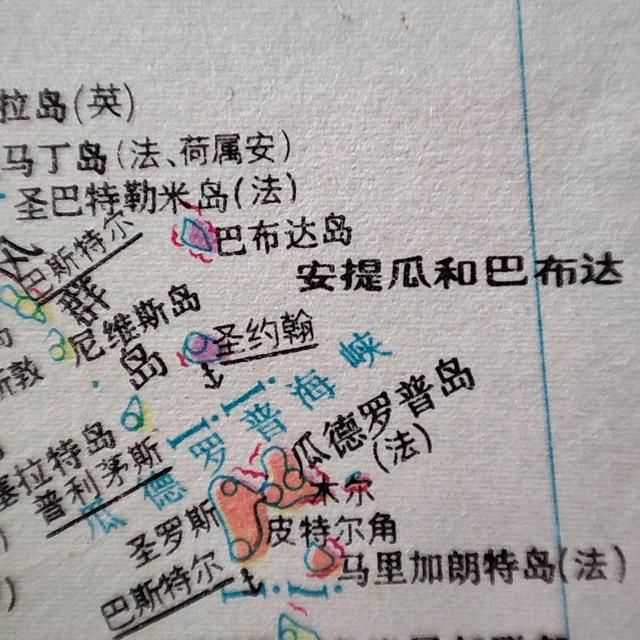 拉岛(英)
马丁岛(法、荷属安)
圣巴特勒米岛(法)
巴斯特尔
巴布达岛
安提瓜和巴布达
群
尼维斯岛
岛
圣约翰
瓜德罗普海峡
瓜德罗普岛
(法)
塞拉特岛
普利茅斯
木尔
圣罗斯
皮特尔角
巴斯特尔
马里加朗特岛(法)